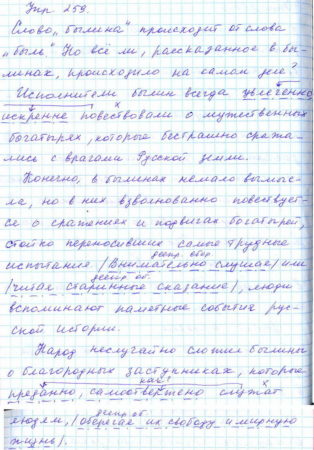 Упр 259.
Слово „былина" происходит от слова
„быль" Но всё ли, рассказанное в бы-
линах, происходило на самом деле?
Исполнители былин всегда увлечённо,
искренне повествовали о мужественных
х
богатырях, которые бесстрашно сража-
лись с врагами Русской земли.
Конечно, в былинах немало вымыс-
ла, но в них взволнованно повествует-
ся о сражениях и подвигах богатырей,
стойко переносивших самые трудные
деепр. обор
испытание /Внимательно слушае/ или
деепр. об.
/читая старинные сказание/, люди
вспоминают памятные событие рус-
ской истории.
Народ неслучайно сложил былины
о благородных заступниках, которые
как? х
преданно, самоотвественно служат
деепр об
людям, /оберегае их свободу и мирную
жизнь/.